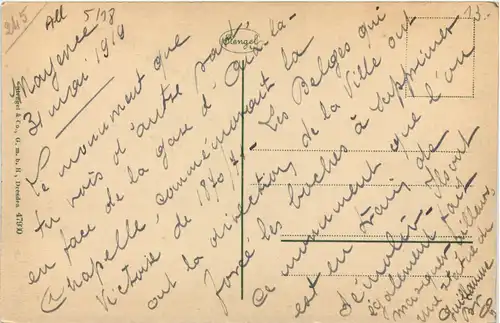 245
All 5/18
13.
Stengel
Stengel & Co., G. m. b. H., Dresden 47900
Mayence
31 mai 1919
Le monument que
tu vois d'autre part
en face de la gare d'Aix-la-
Chapelle, commémorant la
Victoire de 1870/71. Les Belges qui
ont la direction de la Ville ont
forcé les boches à supprimer
ce monument que l'on
est en train de
démolir. Ils ont
également fait